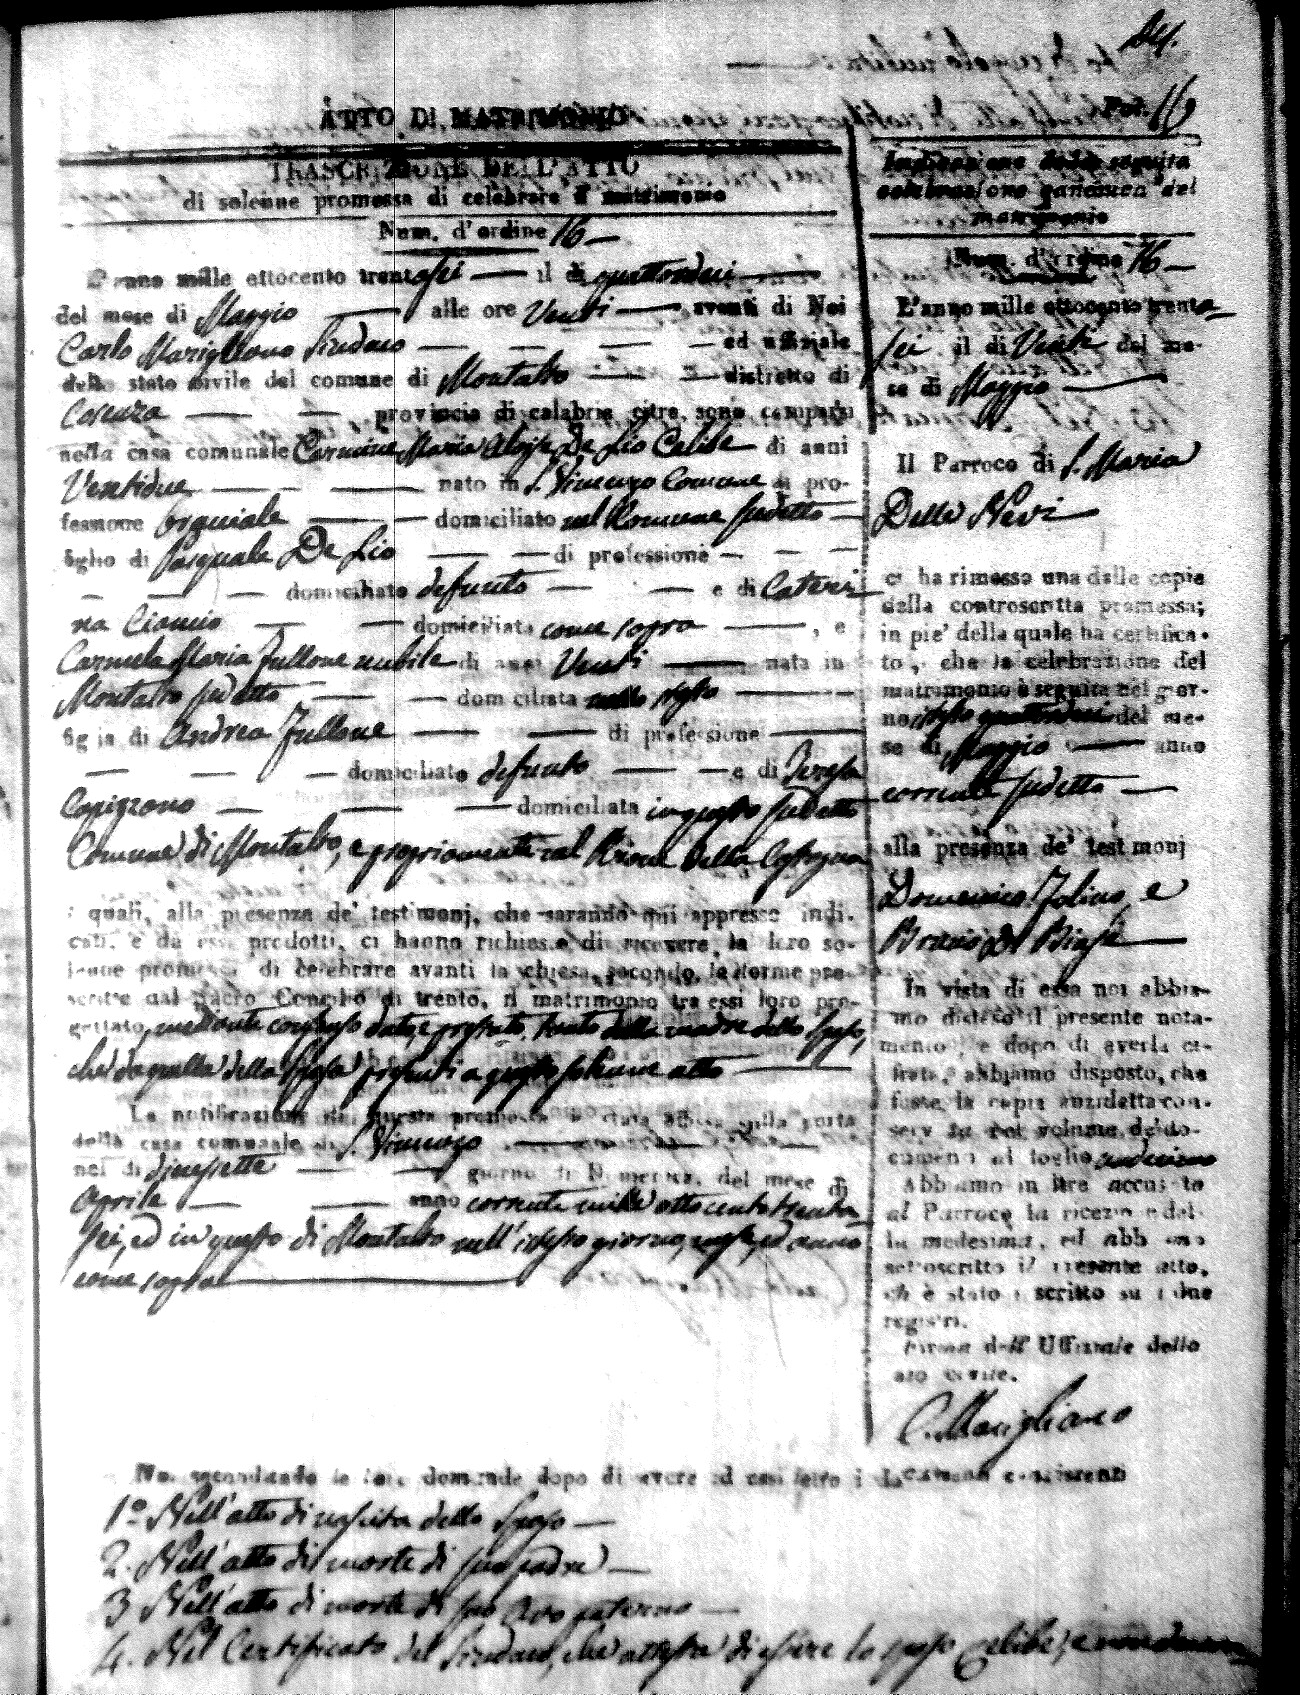 84.
Fol. 16
ATTO DI MATRIMONIO
TRASCRIZIONE DELL'ATTO
di solenne promessa di celebrare il matrimonio
Num. d'ordine 16 —
L'anno mille ottocento trentasei — il dì quattordeci —
del mese di Maggio — alle ore Venti — avanti di Noi
Carlo Marigliano Sindaco — — — ed uffiziale
dello stato civile del comune di Montalto — — distretto di
Cosenza — — provincia di calabria citra, sono comparsi
nella casa comunale Carmine Maria Aloise De Lio Celibe — di anni
Ventidue — — nato in S. Vincenzo Comune di pro-
fessione — domiciliato nel Comune sudetto —
figlio di Pasquale De Lio — — di professione — — —
— — — domiciliato defunto — — e di Cateri
na — — domiciliata come sopra — , e
Carmela Maria Fullone nubile di anni Venti — nata in
Montalto sudetto — — domiciliata nello stesso —
figlia di Andrea Fullone — — di professione —
— — — domiciliato defunto — — e di Teresa
— — — domiciliata in questo sudetto
Comune di Montalto, e propriamente nel Rione della
i quali, alla presenza de' testimonj, che saranno qui appresso indi-
cati, e da essi prodotti, ci hanno richiesto di ricevere la loro so-
lenne promessa di celebrare avanti la chiesa, secondo le forme pre-
scritte dal sacro Concilio di trento, il matrimonio tra essi loro pro-
gettato, mediante consenso dato, e prestato, tanto dalla madre dello sposo,
che da quella della sposa presenti a questo solenne atto —
La notificazione di questa promessa è stata affissa sulla porta
della casa comunale di S. Vincenzo —
nel dì diciasette — — giorno di Domenica, del mese di
Aprile — — anno corrente mille ottocento trenta
sei, ed in questo di Montalto nell'istesso giorno, mese, ed anno
come sopra —
Indicazione della seguita
celebrazione canonica del
matrimonio
Num. d'ordine 16 —
L'anno mille ottocento trenta-
sei il dì Venti del me-
se di Maggio —
Il Parroco di S. Maria
Della Nevi —
ci ha rimesso una delle copie
della controscritta promessa;
in pie' della quale ha certifica-
to, che la celebrazione del
matrimonio è seguita nel gior-
no istesso quattordeci del me-
se di Maggio — anno
corrente sudetto —
alla presenza de' testimonj
Domenico Folino, e
Brasio De Biase —
In vista di essa noi abbia-
mo disteso il presente nota-
mento, e dopo di averla ci-
frata, abbiamo disposto, che
fosse la copia anzidetta con-
servata nel volume de' do-
cumenti al foglio
Abbiamo in oltre accusato
al Parroco la ricezione del-
la medesima, ed abbiamo
sottoscritto il presente atto,
ch'è stato iscritto su i due
registri.
Firma dell'Uffiziale dello
stato civile.
C. Marigliano
Noi secondando le loro domande dopo di avere ad essi letto i documenti consistenti
1º Nell'atto di nascita dello sposo —
2. Nell'atto di morte di suo padre —
3 Nell'atto di morte di suo Avo paterno —
4. Nel Certificato del Sindaco, che attesta di essere lo sposo Celibe, e